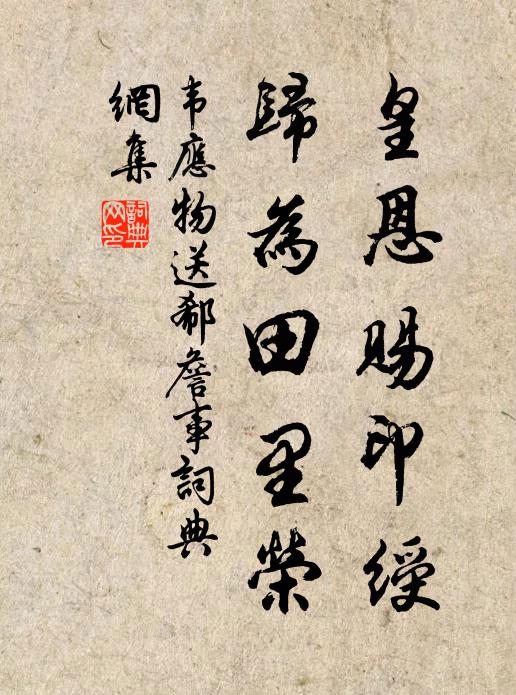 皇恩賜印綬
歸為田里榮
韦應物送郗詹事詞典
網集
詞典
网印